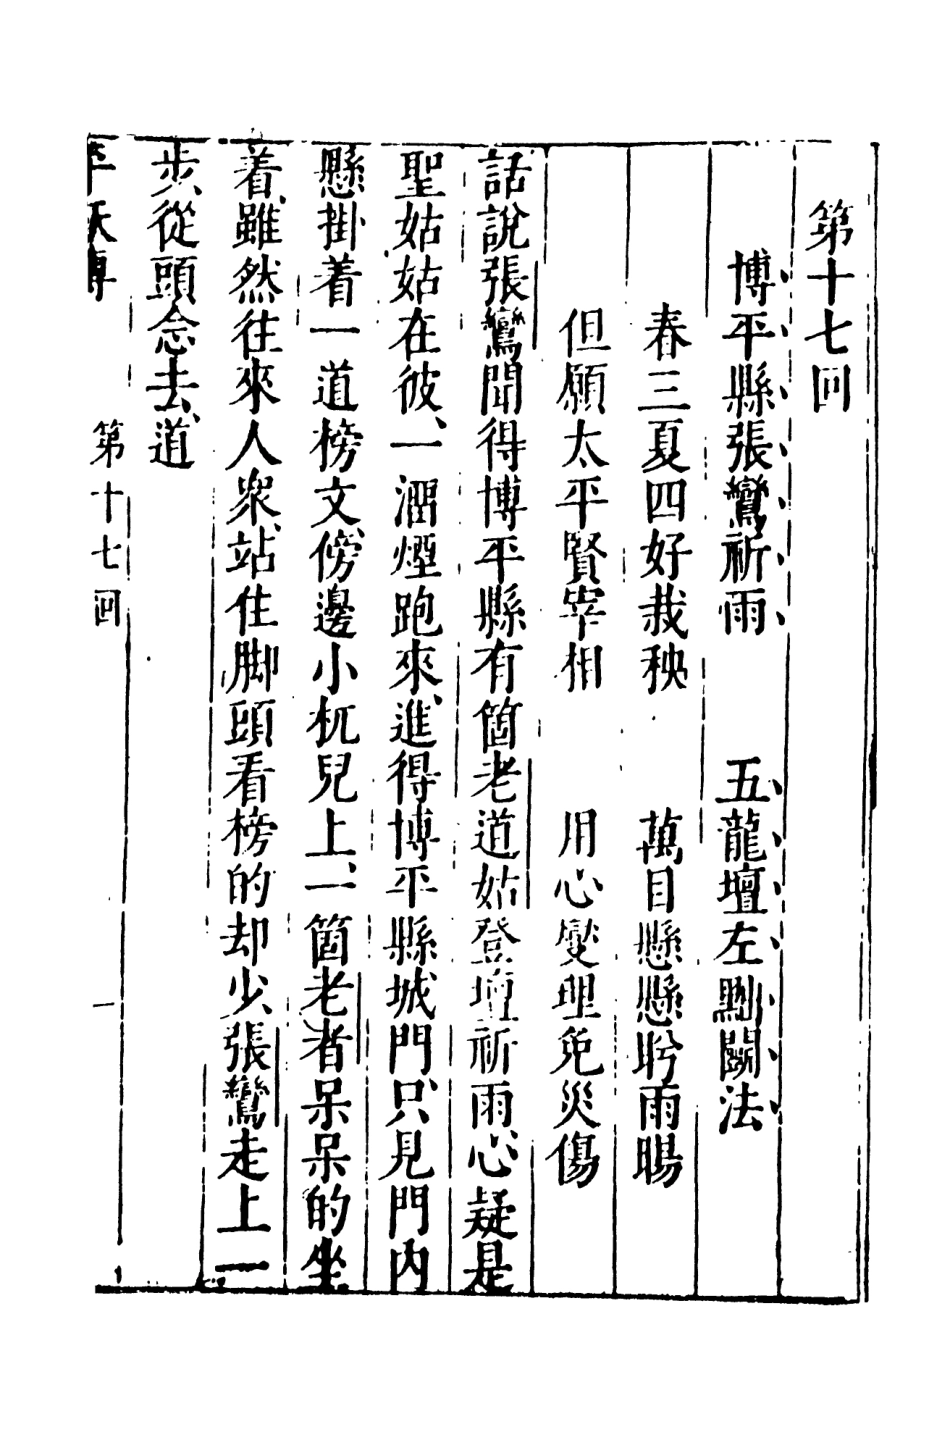 第十七回
博平縣張鸞祈雨　五龍壇左黜鬪法
春三夏四好栽秧　萬目懸懸盻雨暘
但願太平賢宰相　用心燮理免災傷
話說張鸞聞得博平縣有箇老道姑登壇祈雨、心疑是
聖姑姑在彼、一溜煙跑來、進得博平縣城門、只見門內
懸掛着一道榜文、傍邊小杌兒上、一箇老者呆呆的坐
着、雖然往來人衆、站住脚頭看榜的却少、張鸞走上一
步、從頭念去、道
平妖傳　第十七回　一